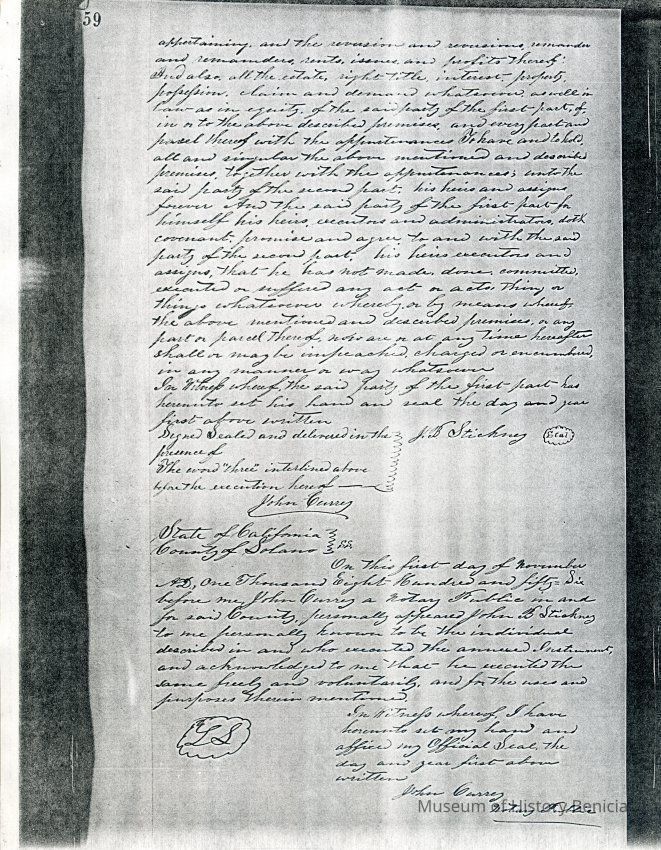 59
appertaining, and the reversion and reversions, remainder
and remainders, rents, issues, and profits thereof;
And also, all the estate, right title, interest, property,
possession, claim and demand whatsoever, as well in
law as in equity, of the said party of the first part, of,
in or to the above described premises, and every part and
parcel thereof with the appurtenances To have and to hold,
all and singular the above mentioned and described
premises, together with the appurtenances; unto the
said party of the second part, his heirs and assigns
forever And the said party of the first part for
himself his heirs, executors and administrators, doth
covenant, promise and agree, to and with the said
party of the second part, his heirs executors and
assigns, that he has not made, done, committed,
executed or suffered any act or acts, thing or
things whatsoever whereby, or by means whereof,
the above mentioned and described premises, or any
part or parcel thereof, now are or at any time hereafter
shall or may be impeached, charged or encumbered,
in any manner or way whatsoever
In Witness whereof, the said party of the first part has
hereunto set his hand and seal the day and year
first above written
Signed Sealed and delivered in the J. B Stickney Seal
presence of
The word "three" interlined above
before the execution hereof
John Currey
State of California
County of Solano SS.
On this first day of November
AD, One Thousand Eight Hundred and fifty-Six
before me John Currey a Notary Public in and
for said County, personally appeared John B Stickney
to me personally known to be the individual
described in and who executed the annexed Instrument,
and acknowledged to me that he executed the
same freely and voluntarily, and for the uses and
purposes therein mentioned
In Witness whereof I have
LS
hereunto set my hand and
affixed my Official Seal, the
day and year first above
written
John Currey
Museum of History Benicia
Notary Public